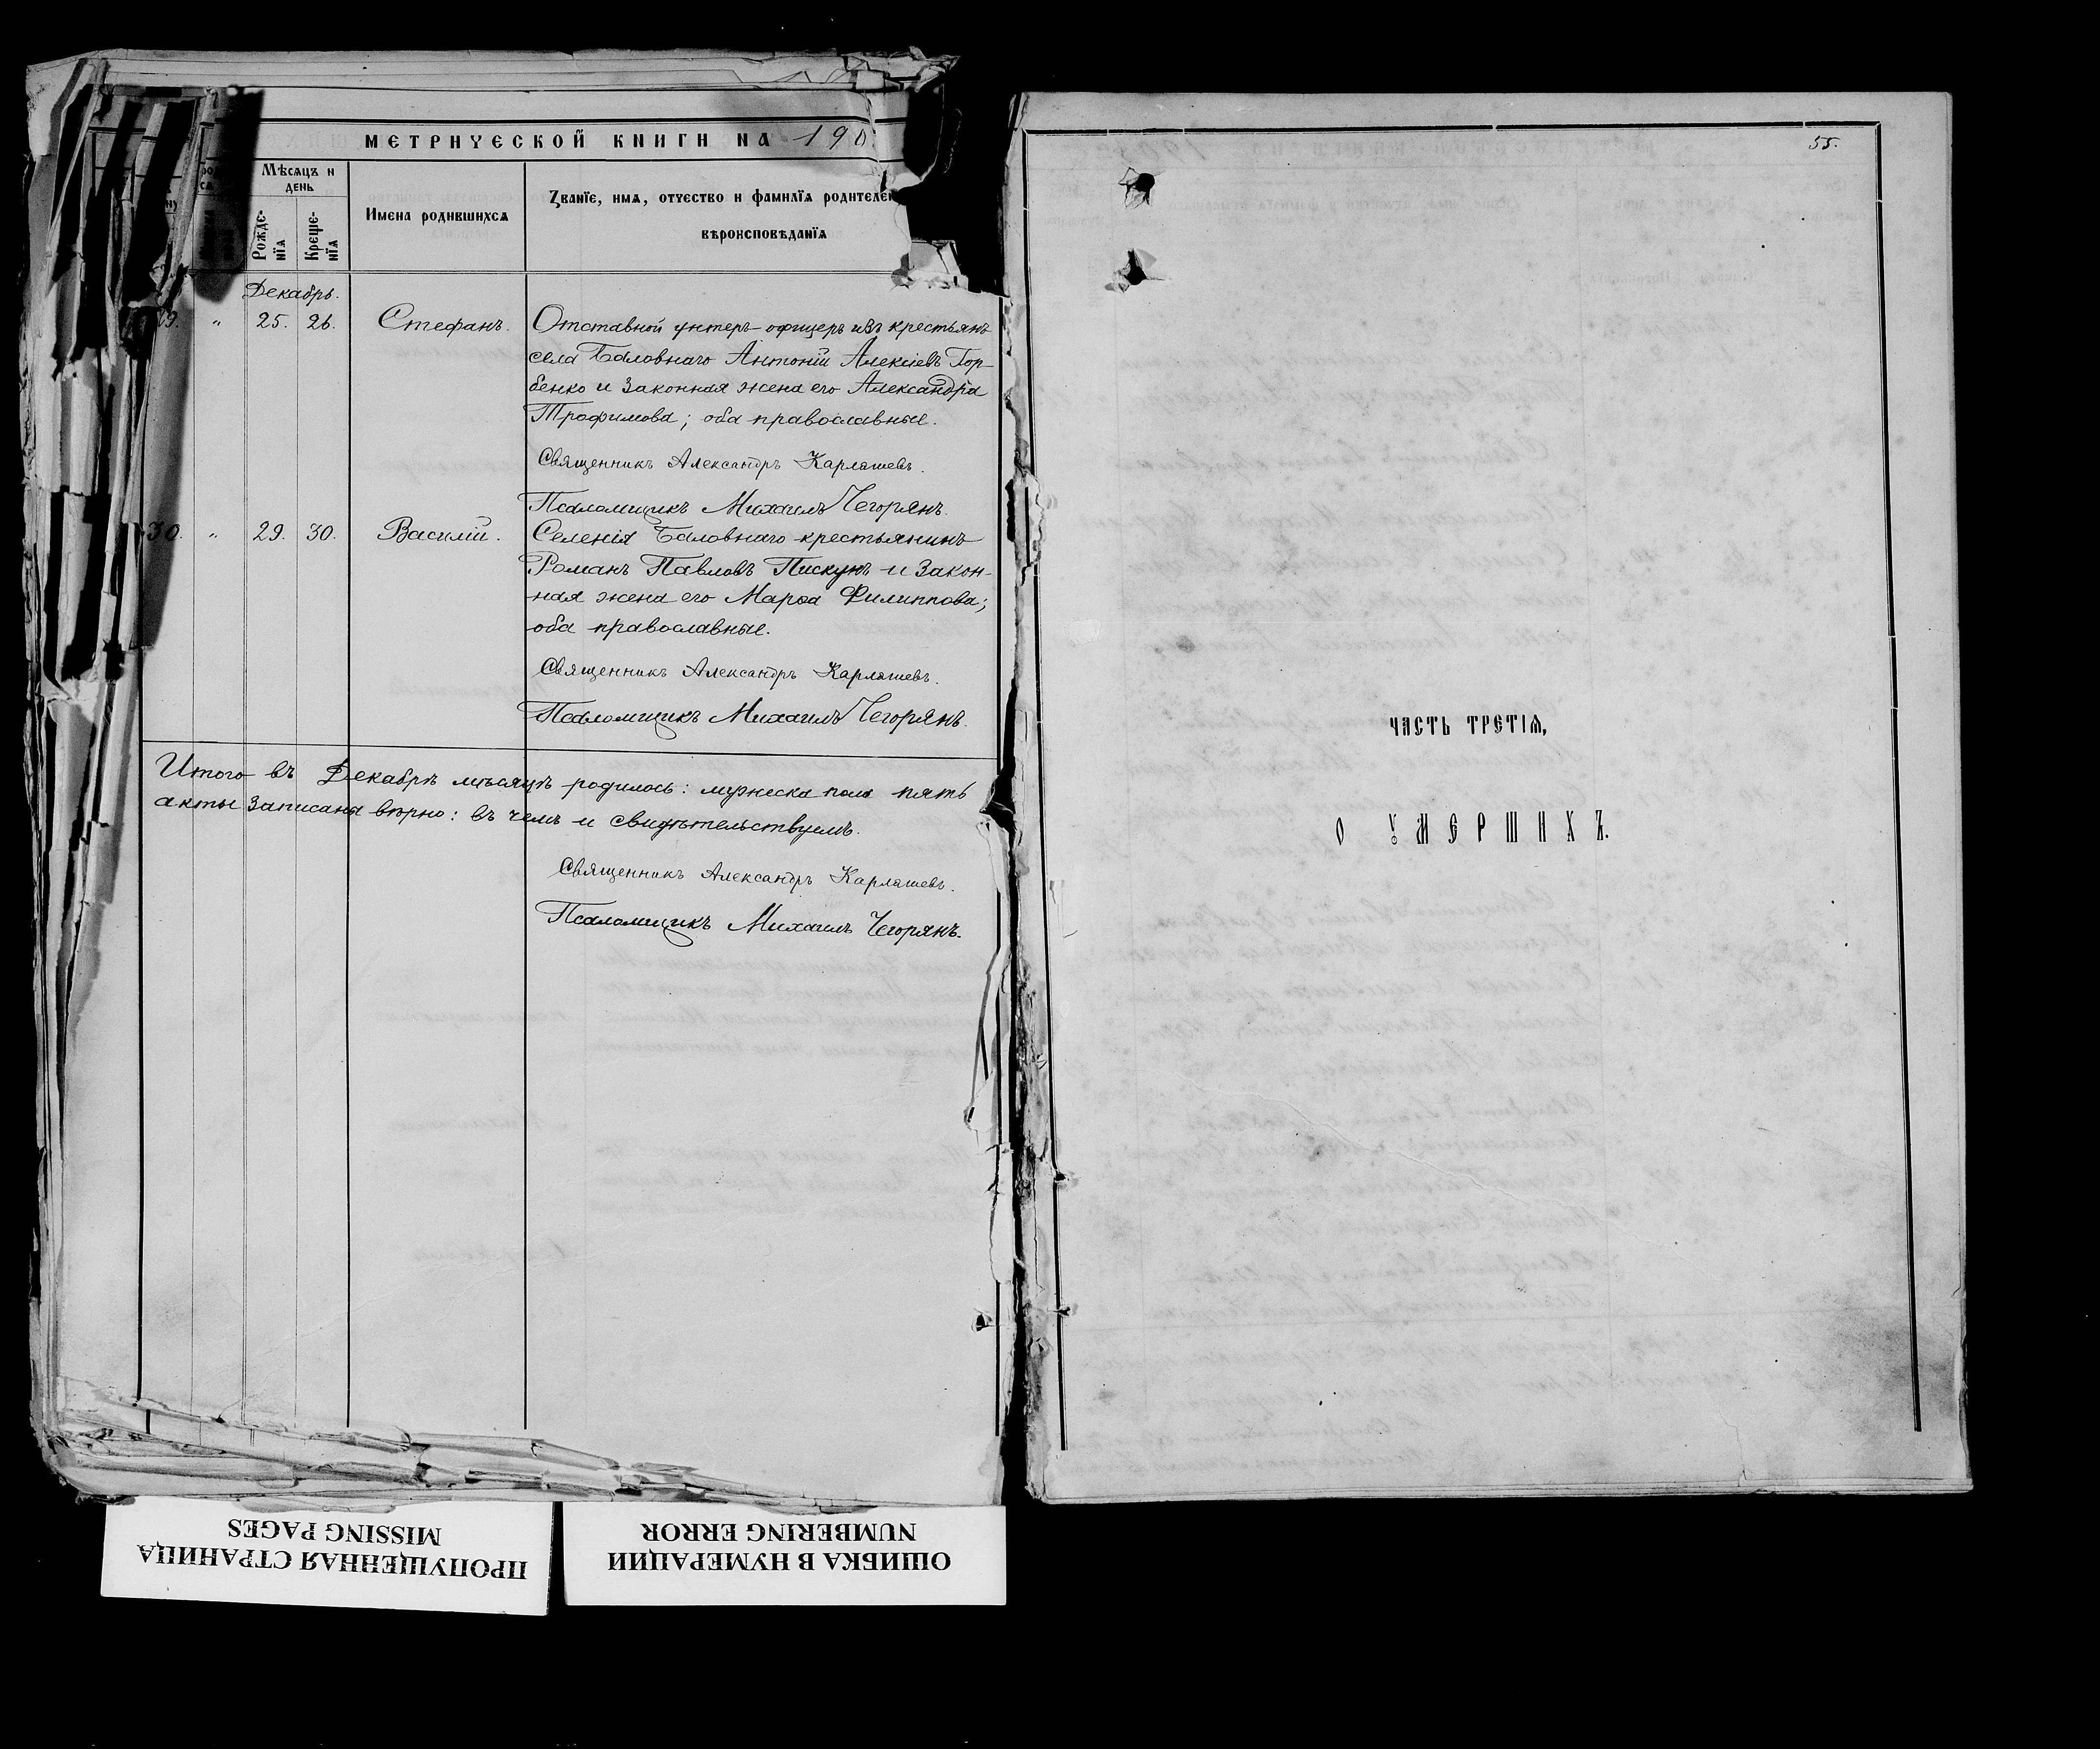 МЕТРИЧЕСКОЙ КНИГИ НА 190
Мѣсяцъ и день
Рожденїя
Крещенїя
Имена родившихся
Званїе, имя, отчество и фамилїя родителей
вѣроисповѣданїя
Декабрь.
29. „ 25. 26. Стефанъ. Отставной унтеръ-офицеръ изъ крестьянъ
села Баловнаго Антоній Алексіевъ Гор-
бенко и законная жена его Александра
Трофимова; оба православные.
Священникъ Александръ Карлашевъ.
Псаломщикъ Михаилъ Чегорянъ.
30. „ 29. 30. Василій. Селенія Баловнаго крестьянинъ
Романъ Павловъ Пискунъ и закон-
ная жена его Марѳа Филиппова;
оба православные.
Священникъ Александръ Карлашевъ.
Псаломщикъ Михаилъ Чегорянъ.
Итого въ Декабрѣ мѣсяцѣ родилось: мужеска пола пять
акты записаны вѣрно: въ чемъ и свидѣтельствуемъ.
Священникъ Александръ Карлашевъ.
Псаломщикъ Михаилъ Чегорянъ.
ПРОПУЩЕННАЯ СТРАНИЦА
MISSING PAGES
ОШИБКА В НУМЕРАЦИИ
NUMBERING ERROR
55.
ЧАСТЬ ТРЕТІЯ,
О УМЕРШИХЪ.